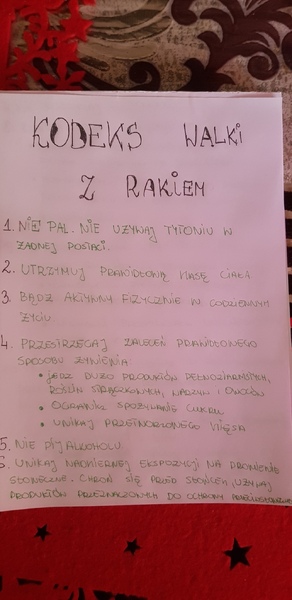 KODEKS WALKI
Z RAKIEM
1. NIE PAL. NIE UŻYWAJ TYTONIU W
ŻADNEJ POSTACI.
2. UTRZYMUJ PRAWIDŁOWĄ MASĘ CIAŁA
3. BĄDŹ AKTYWNY FIZYCZNIE W CODZIENNYM
ŻYCIU
4. PRZESTRZEGAJ ZALECEŃ PRAWIDŁOWEGO
SPOSOBU ŻYWIENIA
• JEDZ DUŻO PRODUKTÓW PEŁNOZIARNISTYCH,
ROŚLIN STRĄCZKOWYCH, WARZYW I OWOCÓW
• OGRANICZ SPOŻYWANIE CUKRU
• UNIKAJ PRZETWORZONEGO MIĘSA
5. NIE PIJ ALKOHOLU
6. UNIKAJ NADMIERNEJ EKSPOZYCJI NA PROMIENIE
SŁONECZNE. CHROŃ SIĘ PRZED SŁOŃCEM, UŻYWAJ
PRODUKTÓW PRZEZNACZONYCH DO OCHRONY